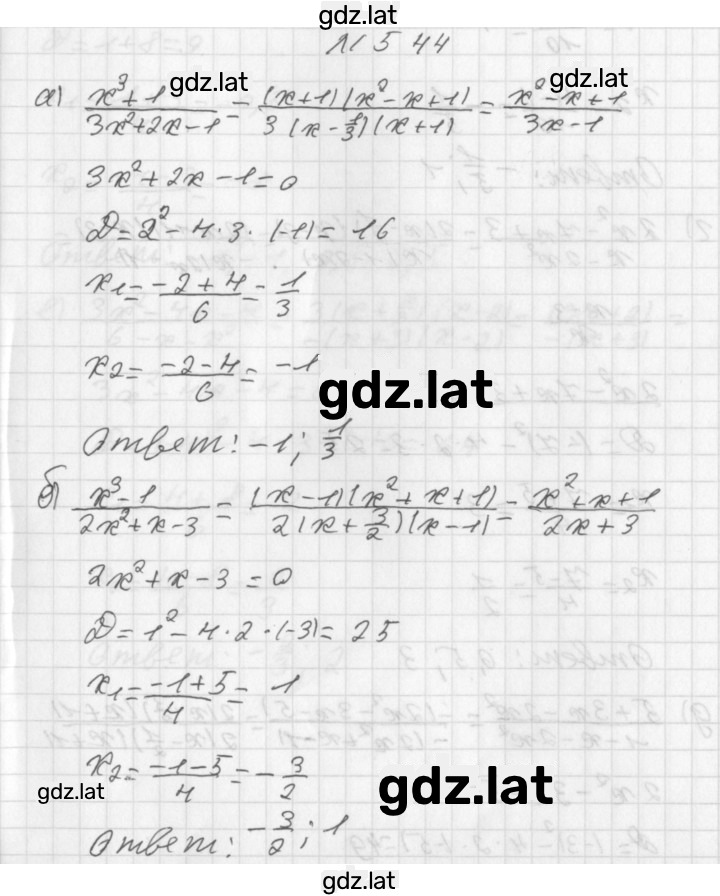 gdz.lat
N 544
gdz.lat
gdz.lat
а) (x³+1)/(3x²+2x-1) = ((x+1)(x²-x+1))/(3(x-1/3)(x+1)) = (x²-x+1)/(3x-1)
3x²+2x-1=0
D=2²-4·3·(-1)=16
x₁=(-2+4)/6=1/3
x₂=(-2-4)/6=-1
gdz.lat
Ответ: -1; 1/3
б) (x³-1)/(2x²+x-3) = ((x-1)(x²+x+1))/(2(x+3/2)(x-1)) = (x²+x+1)/(2x+3)
2x²+x-3=0
D=1²-4·2·(-3)=25
x₁=(-1+5)/4=1
x₂=(-1-5)/4=-3/2
gdz.lat
gdz.lat
Ответ: -3/2; 1
gdz.lat